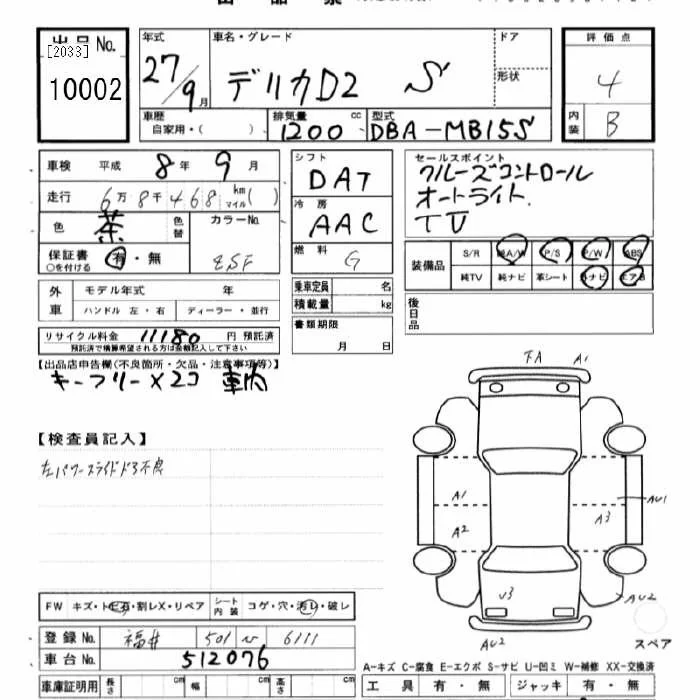 出品No.
[2033]
10002
年式 27/9月
車名・グレード デリカD2 S
ドア
形状
評価点 4
内装 B
車歴 自家用・( )
排気量 1200 cc
型式 DBA-MB15S
車検 平成 8年 9月
走行 6万8千468 km マイル( )
色 茶 色替
カラーNo. ZSF
保証書 有・無
○を付ける
シフト DAT
冷房 AAC
燃料 G
セールスポイント
クルーズコントロール
オートライト
TV
装備品 S/R AAW P/S P/W ABS
純TV 純ナビ 革シート ナビ エアB
外車 モデル年式 年
ハンドル 左・右 ディーラー・並行
乗車定員 名
積載量 kg
後日品
リサイクル料金 11180 円 預託済
預託済で精算希望される方は金額記入して下さい
書類期限 月 日
【出品店申告欄(不良箇所・欠品・注意事項等)】
キーフリー×2コ 車内
【検査員記入】
左パワースライドドア不良
下A A1
A1 AU1
A2 A3
U3 AU2
AU2
スペア
FW キズ・トビ石・割レX・リペア シート内装 コゲ・穴・汚レ・破レ
登録No. 福井 501 6111
車台No. 512076
A-キズ C-腐食 E-エクボ S-サビ U-凹ミ W-補修 XX-交換済
車庫証明用 長さ cm 幅 cm 高さ cm
工具 有・無 ジャッキ 有・無